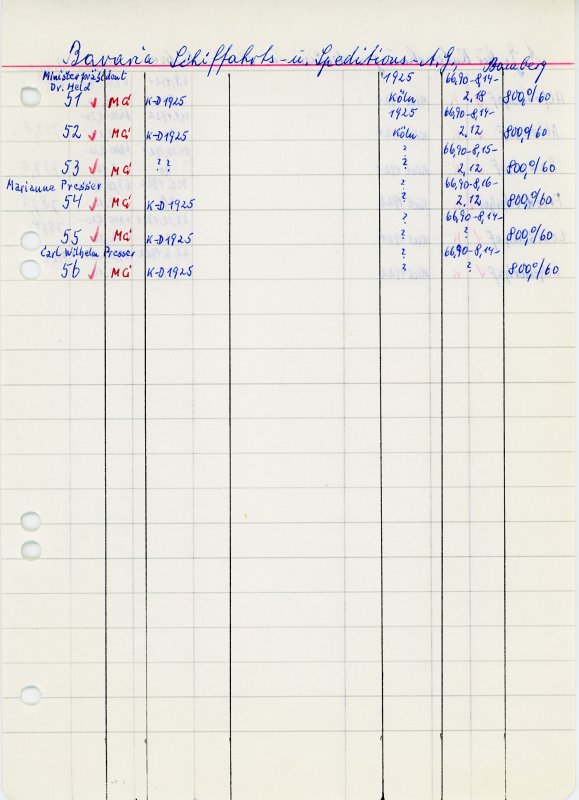 Bavaria Schiffahrts- u. Speditions-A.G., Bamberg
Ministerpräsident 1925 66,90-8,14-
Dr. Held
51 ✓ MG K-D 1925 Köln 2,18 800,0/60
1925 66,90-8,14-
52 ✓ MG K-D 1925 Köln 2,12 800,0/60
? 66,90-8,15-
53 ✓ MG ?? ? 2,12 800,0/60
Marianne Presser ? 66,90-8,16-
54 ✓ MG K-D 1925 ? 2,12 800,0/60
? 66,90-8,14-
55 ✓ MG K-D 1925 ? ? 800,0/60
Carl Wilhelm Presser ? 66,90-8,14-
56 ✓ MG K-D 1925 ? ? 800,0/60